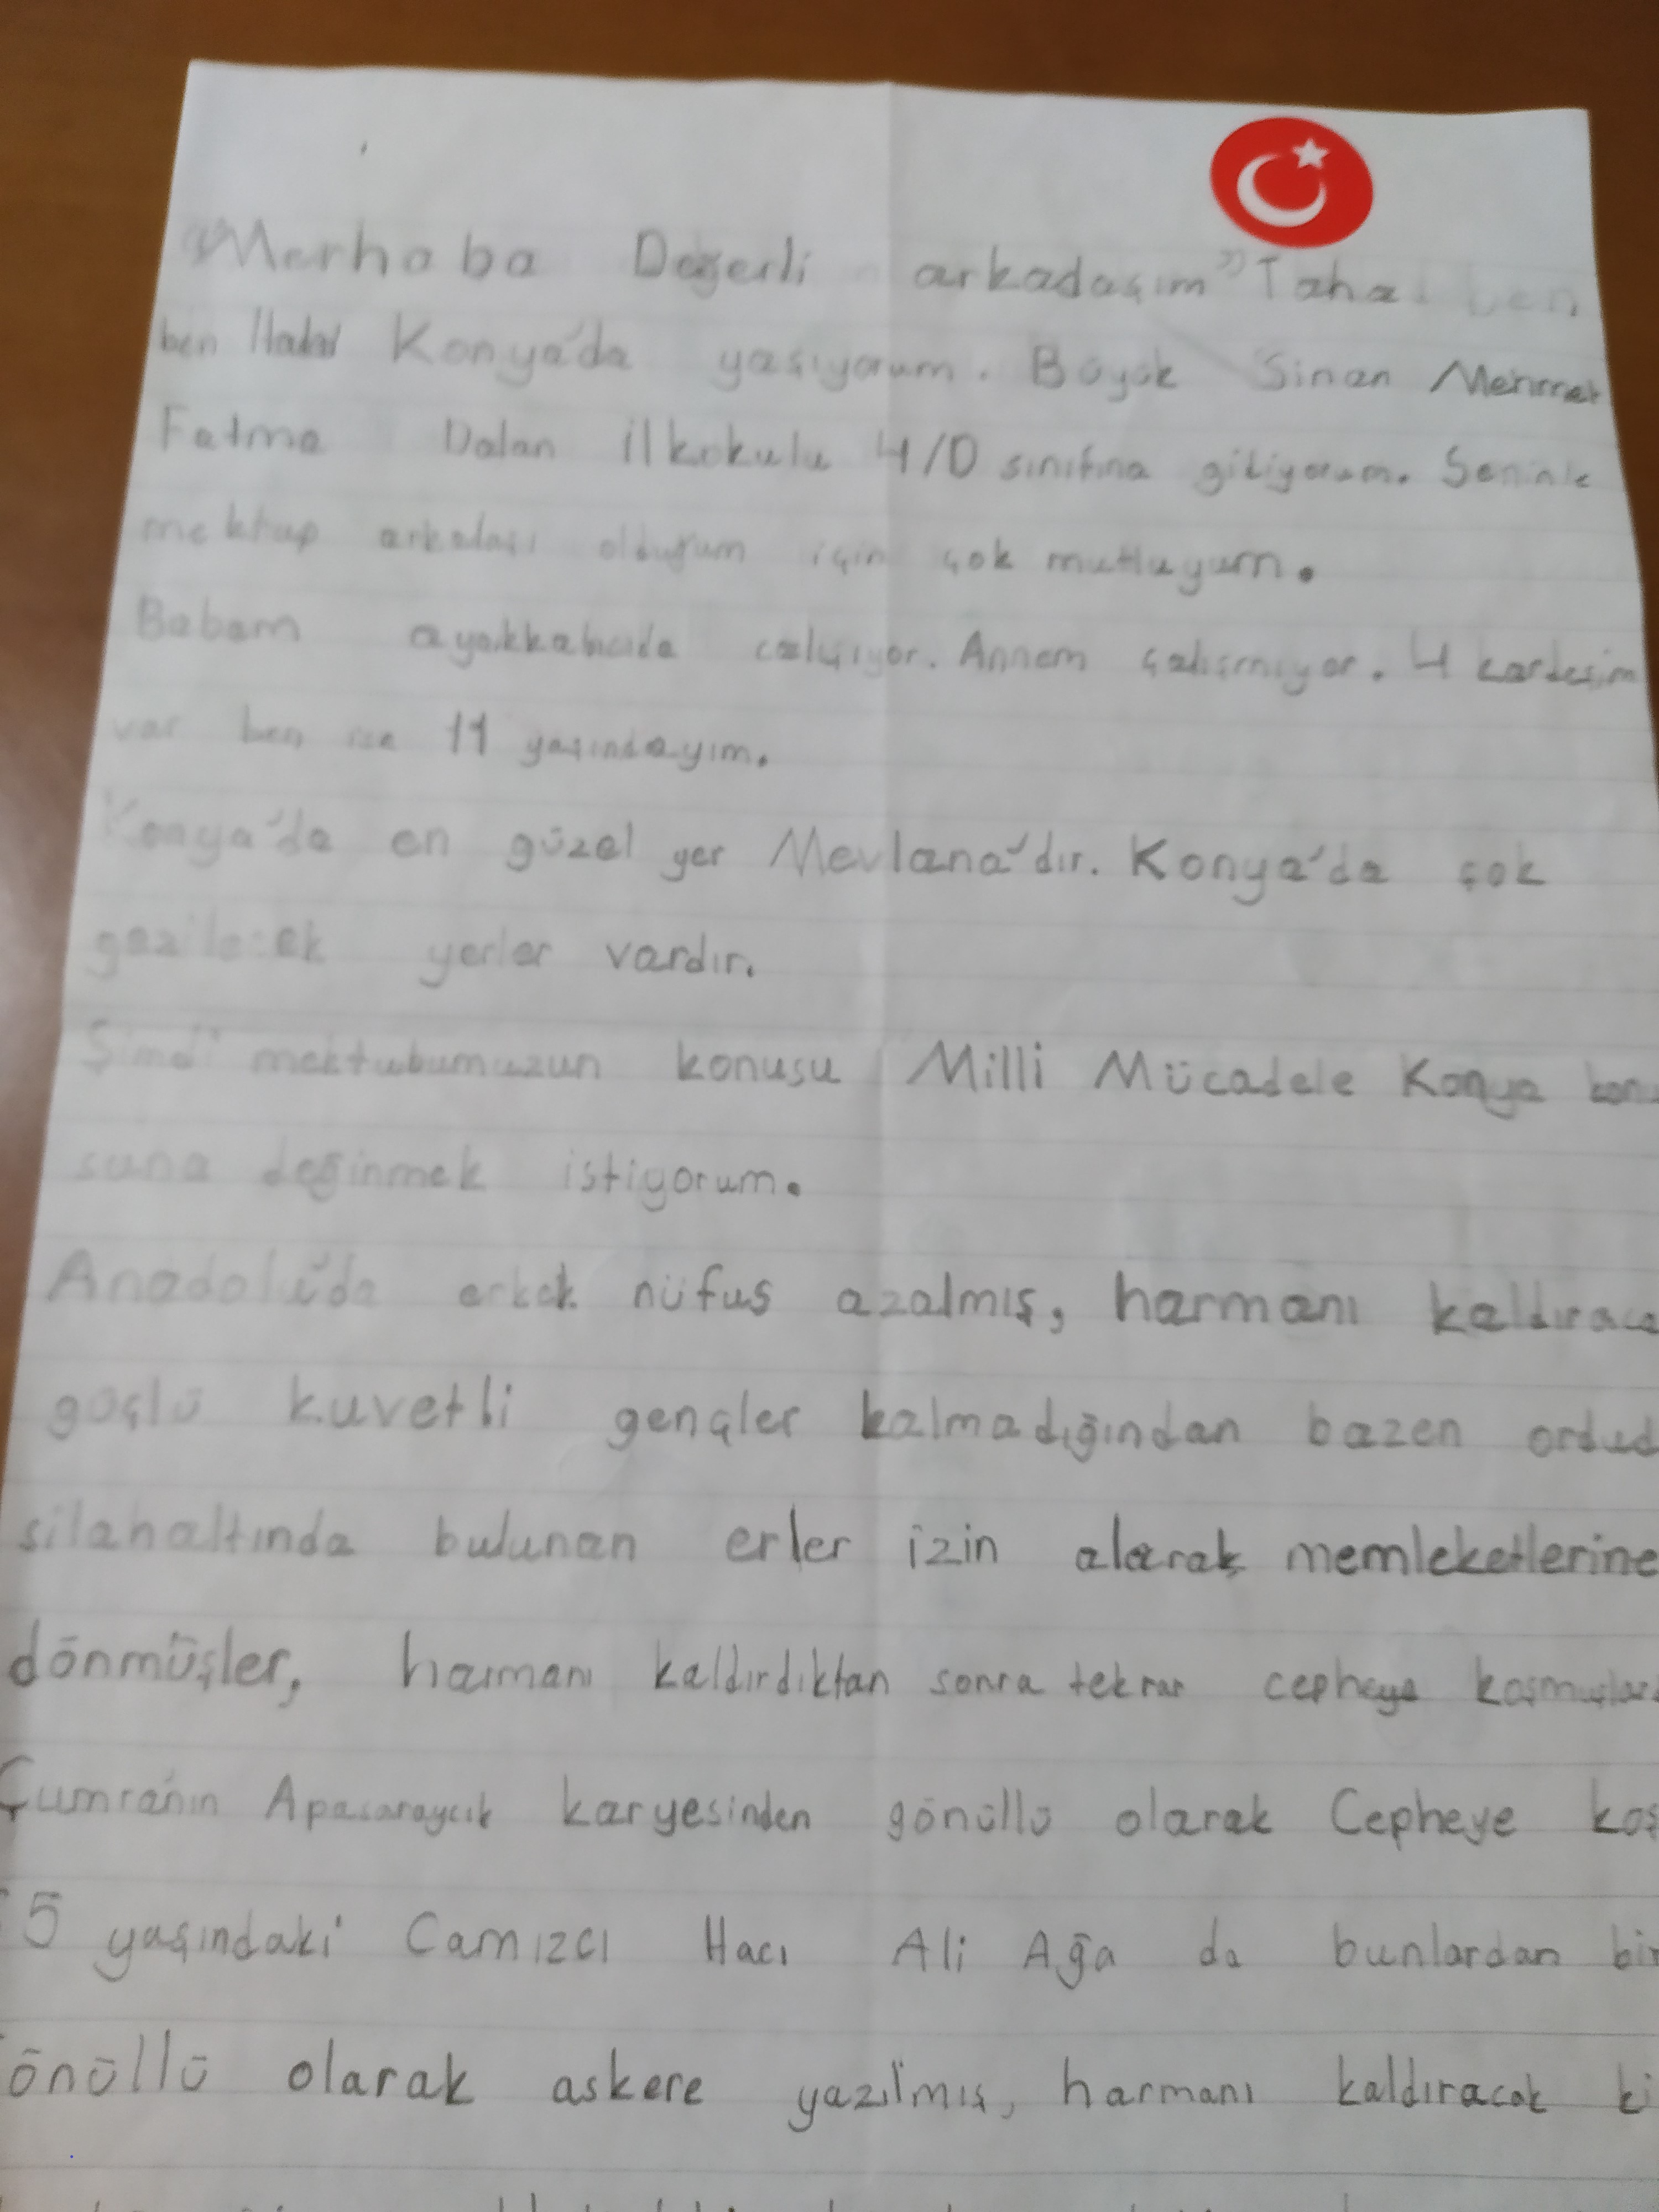 "Merhaba Değerli arkadaşım" Taha ben
ben Konya'da yaşıyorum. Büyük Sinan Mehmet
Fatma Dalan ilkokulu 4/D sınıfına gitiyorum. Seninle
mektup arkadaşı olduğum için çok mutluyum.
Babam ayakkabıcıda çalışıyor. Annem çalışmıyor. 4 kardeşim
var ben ise 11 yaşındayım.
Konya'da en güzel yer Mevlana'dır. Konya'da çok
gezilecek yerler vardır.
Şimdi mektubumuzun konusu Milli Mücadele Konya konu
suna değinmek istiyorum.
Anadolu'da erkek nüfus azalmış, harmanı kaldırac
güçlü kuvetli gençler kalmadığından bazen ordud
silahaltında bulunan erler izin alarak memleketlerine
dönmüşler, harmanı kaldırdıktan sonra tekrar cepheye koşmuşlar
Çumra'nın Apasaraycık karyesinden gönüllü olarak Cepheye koş
5 yaşındaki Camızcı Hacı Ali Ağa da bunlardan bir
önüllü olarak askere yazılmış, harmanı kaldıracak ki